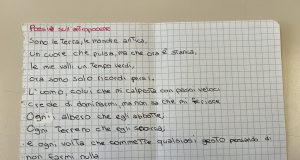 Poesia sull'antropocene
Sono la Terra, la madre antica,
Un cuore che pulsa, ma che ora è stanca,
le mie valli un tempo verdi,
ora sono solo ricordi persi.
L'uomo, colui che mi calpesta con passi veloci
crede di dominarmi, ma non sa che mi ferisce
Ogni albero che egli abbatte,
Ogni terreno che egli
e ogni volta che commette qualsiasi gesto pensando di
non farmi nulla